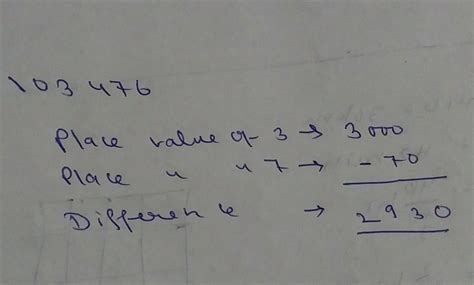 103476
Place value of 3 → 3000
Place " " 7 → -70
Difference → 2930